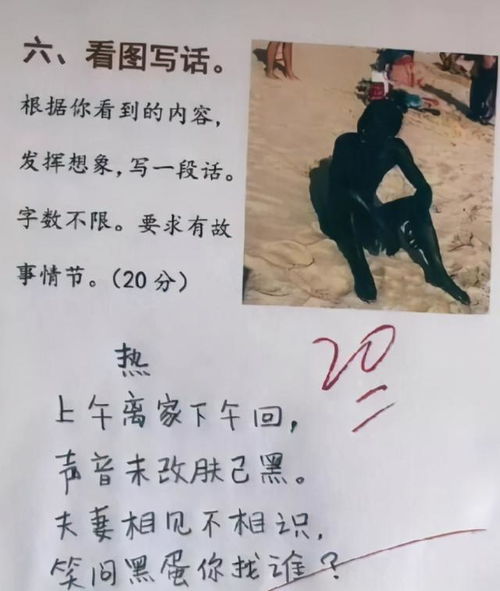 六、看图写话。
根据你看到的内容，
发挥想象，写一段话。
字数不限。要求有故
事情节。（20分）
热
20
上午离家下午回，
声音未改肤已黑。
夫妻相见不相识，
笑问黑蛋你找谁？